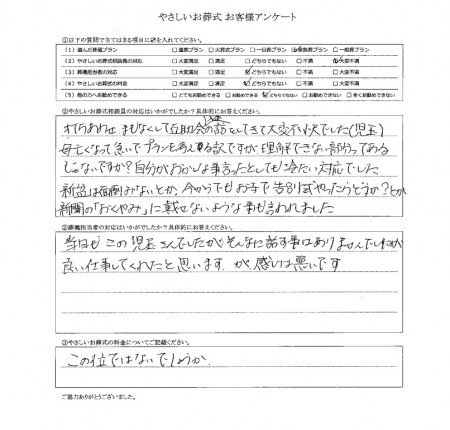 やさしいお葬式 お客様アンケート
①以下の質問で当てはまる項目に✓を入れてください。
(1) 選んだ葬儀プラン □直葬プラン □火葬式プラン □一日葬プラン 家族葬プラン □一般葬プラン
(2) やさしいお葬式相談員の対応 □大変満足 □満足 □どちらでもない □不満 大変不満
(3) 葬儀担当者の対応 □大変満足 □満足 どちらでもない □不満 □大変不満
(4) やさしいお葬式の料金 □大変満足 □満足 どちらでもない □不満 □大変不満
(5) 他の方へお勧めできる □とてもお勧めできる □お勧めできる どちらでもない □お勧めできない □全くお勧めできない
②やさしいお葬式相談員の対応はいかがでしたか？具体的にお答えください。
打ちあわせ まもなくして互助会の話をしてきて大変不快でした(児玉)
母亡くなって急いでプランを考える訳ですが理解できない部分ってある
じゃないですか？自分がおかしな事言ったとしても冷たい対応でした
新盆は面倒みないとか、今からでもお寺で告別式やったらどうか？とか
新聞の「おくやみ」に載せないような事も言われました
②葬儀担当者の対応はいかがでしたか？具体的にお答えください。
当日もこの児玉さんでしたがそんなに話す事はありませんでしたが
良い仕事してくれたと思います が 感じは悪いです
③やさしいお葬式の料金についてご記載ください。
この位ではないでしょうか
ご協力ありがとうございました。